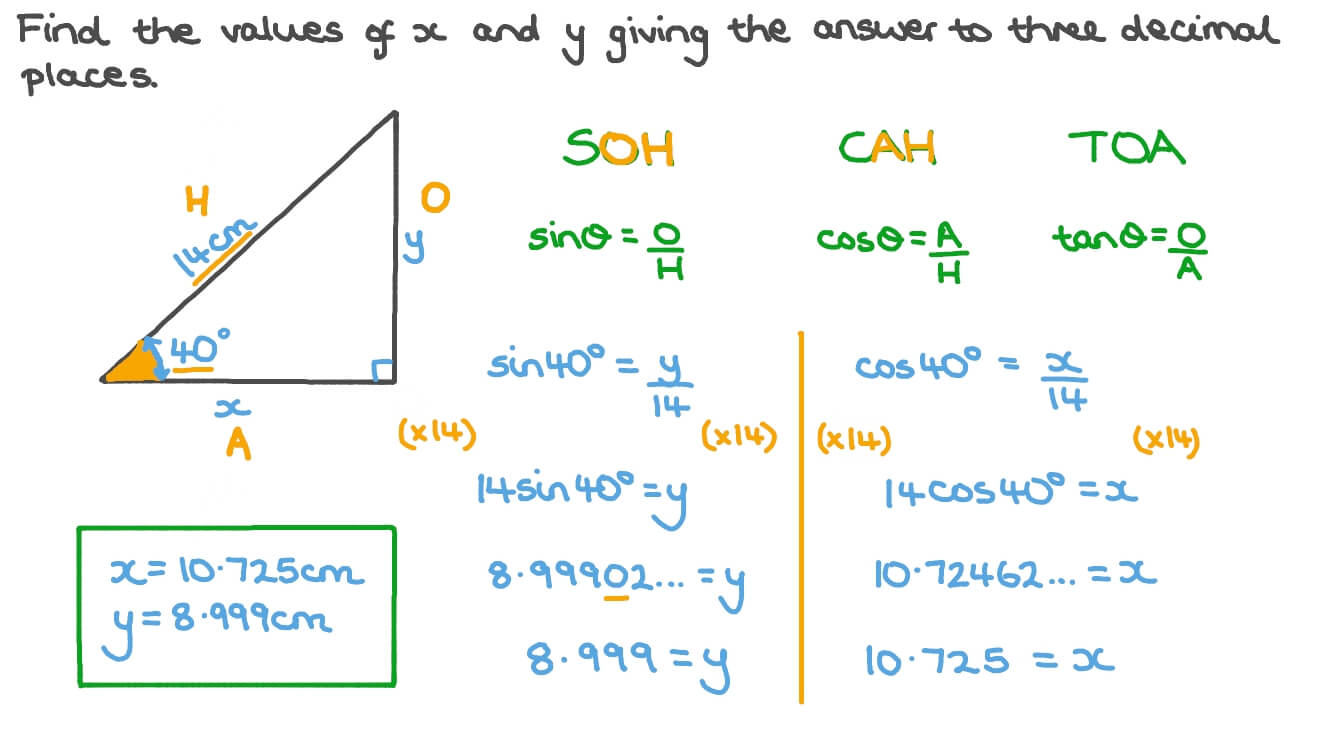 Find the values of x and y giving the answer to three decimal
places.
SOH CAH TOA
H
14cm
O
y
sinθ = O/H cosθ = A/H tanθ = O/A
40°
x
A
sin40° = y/14
(x14) (x14)
14sin40° = y
8.99902... = y
8.999 = y
cos40° = x/14
(x14) (x14)
14cos40° = x
10.72462... = x
10.725 = x
x = 10.725cm
y = 8.999cm